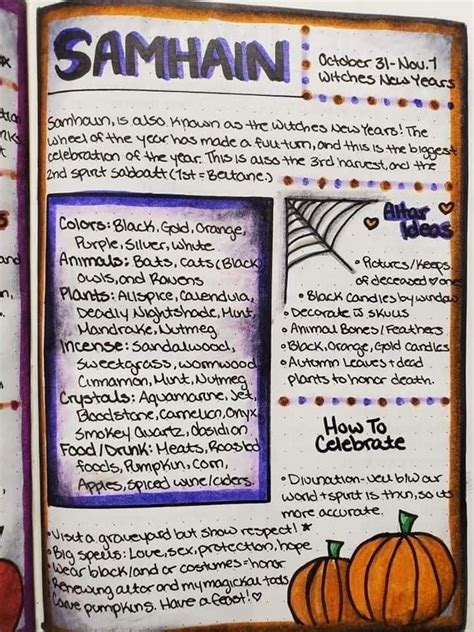 SAMHAIN
October 31-Nov. 1
Witches New Years
Samhaun, is also known as the witches New Years! The
wheel of the year has made a full turn, and this is the biggest
celebration of the year. This is also the 3rd harvest, and the
2nd spirit sabbatt (1st = Beltane.)
Colors: Black, Gold, Orange,
Purple, Silver, White.
Animals: Bats, cats (Black)
Owls, and Ravens
Plants: Allspice, Calendula,
Deadly Nightshade, Mint,
Mandrake, Nutmeg
Incense: Sandalwood,
Sweetgrass, wormwood
Cinnamon, Mint, Nutmeg
Crystals: Aquamarine, Jet,
Bloodstone, Carnelion, Onyx,
Smokey Quartz, Obsidion
Food/Drunk: Meats, Roasted
foods, Pumpkin, corn,
Apples, spiced wine/ciders.
Altar
Ideas
• Pictures/Keeps
of deceased ones
• Black candles by window
• Decorate w skulls
• Animal Bones/Feathers
• Black, Orange, Gold candles
• Autumn Leaves + dead
plants to honor death.
How To
Celebrate
• Divunation-veil b/w our
world + spirit is thin, so its
more accurate.
• Visit a graveyard but show respect! *
• Big spells: Love, sex, protection, hope
• Wear black/and or costumes = honor
• Renewing altar and my magickal tools
• Carve pumpkins. Have a feast!